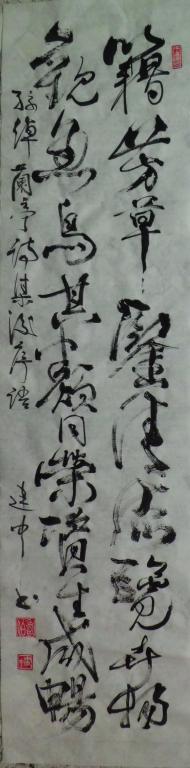 籍芳草鑒清流覽卉物
觀魚鳥具類同榮資生咸暢
孫綽蘭亭詩集後序語
建中書